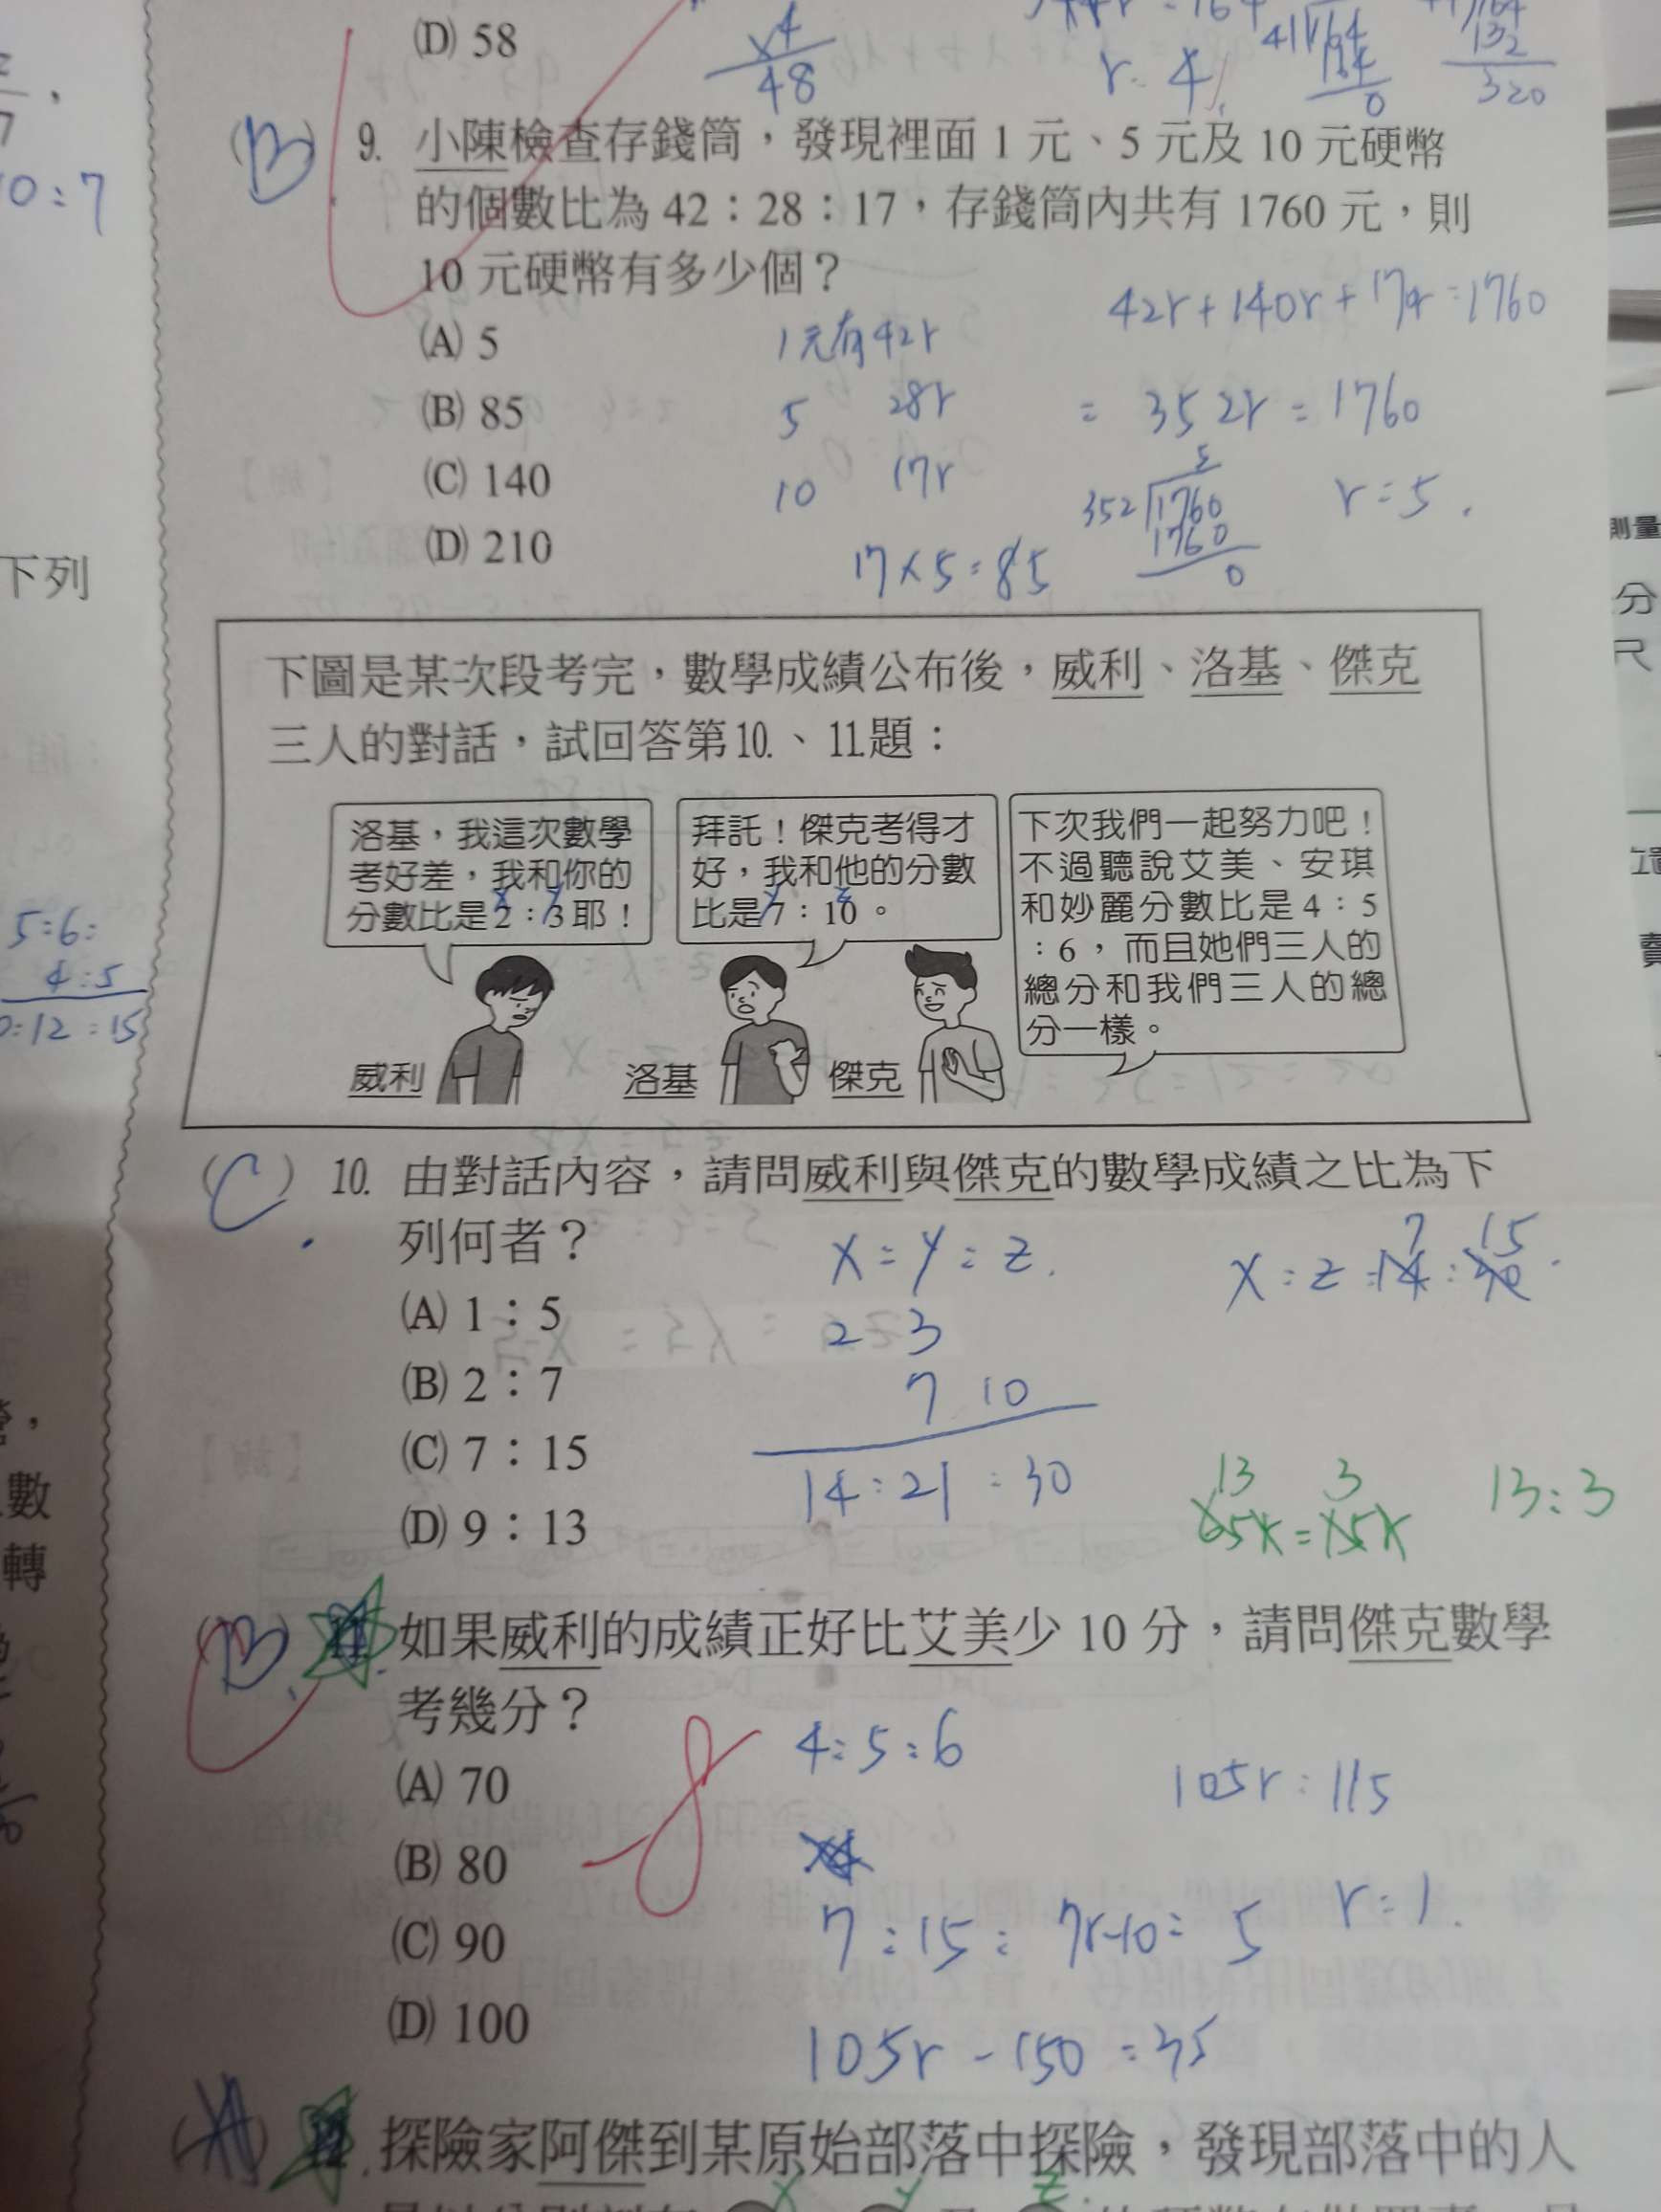 (D) 58
×4
48
r = 4
0
320
(B) 9. 小陳檢查存錢筒，發現裡面 1 元、5 元及 10 元硬幣
的個數比為 42：28：17，存錢筒內共有 1760 元，則
10 元硬幣有多少個？
42r + 140r + 170r = 1760
(A) 5
1元有42r
(B) 85
5 28r
= 352r = 1760
(C) 140
10 17r
5
352 1760
1760
0
r = 5
(D) 210
17 × 5 = 85
下圖是某次段考完，數學成績公布後，威利、洛基、傑克
三人的對話，試回答第10.、11.題：
洛基，我這次數學
考好差，我和你的
分數比是2：3耶！
x y
拜託！傑克考得才
好，我和他的分數
比是7：10。
y z
下次我們一起努力吧！
不過聽說艾美、安琪
和妙麗分數比是4：5
：6，而且她們三人的
總分和我們三人的總
分一樣。
威利
洛基
傑克
(C) 10. 由對話內容，請問威利與傑克的數學成績之比為下
列何者？
x : y : z
2 3
7 10
14 : 21 : 30
7 15
x : z = 14 : 30
(A) 1：5
(B) 2：7
(C) 7：15
(D) 9：13
13 3
65x = 15x
13 : 3
(B) 11. 如果威利的成績正好比艾美少 10 分，請問傑克數學
考幾分？
4 : 5 : 6
(A) 70
105r = 115
(B) 80
r = 1
(C) 90
7 : 15 = 7r-10 : 5
(D) 100
105r - 150 = 35
(A) 12. 探險家阿傑到某原始部落中探險，發現部落中的人
x y z
0:7
下列
5:6:
4:5
:12 :15
數
轉
測量
分
尺